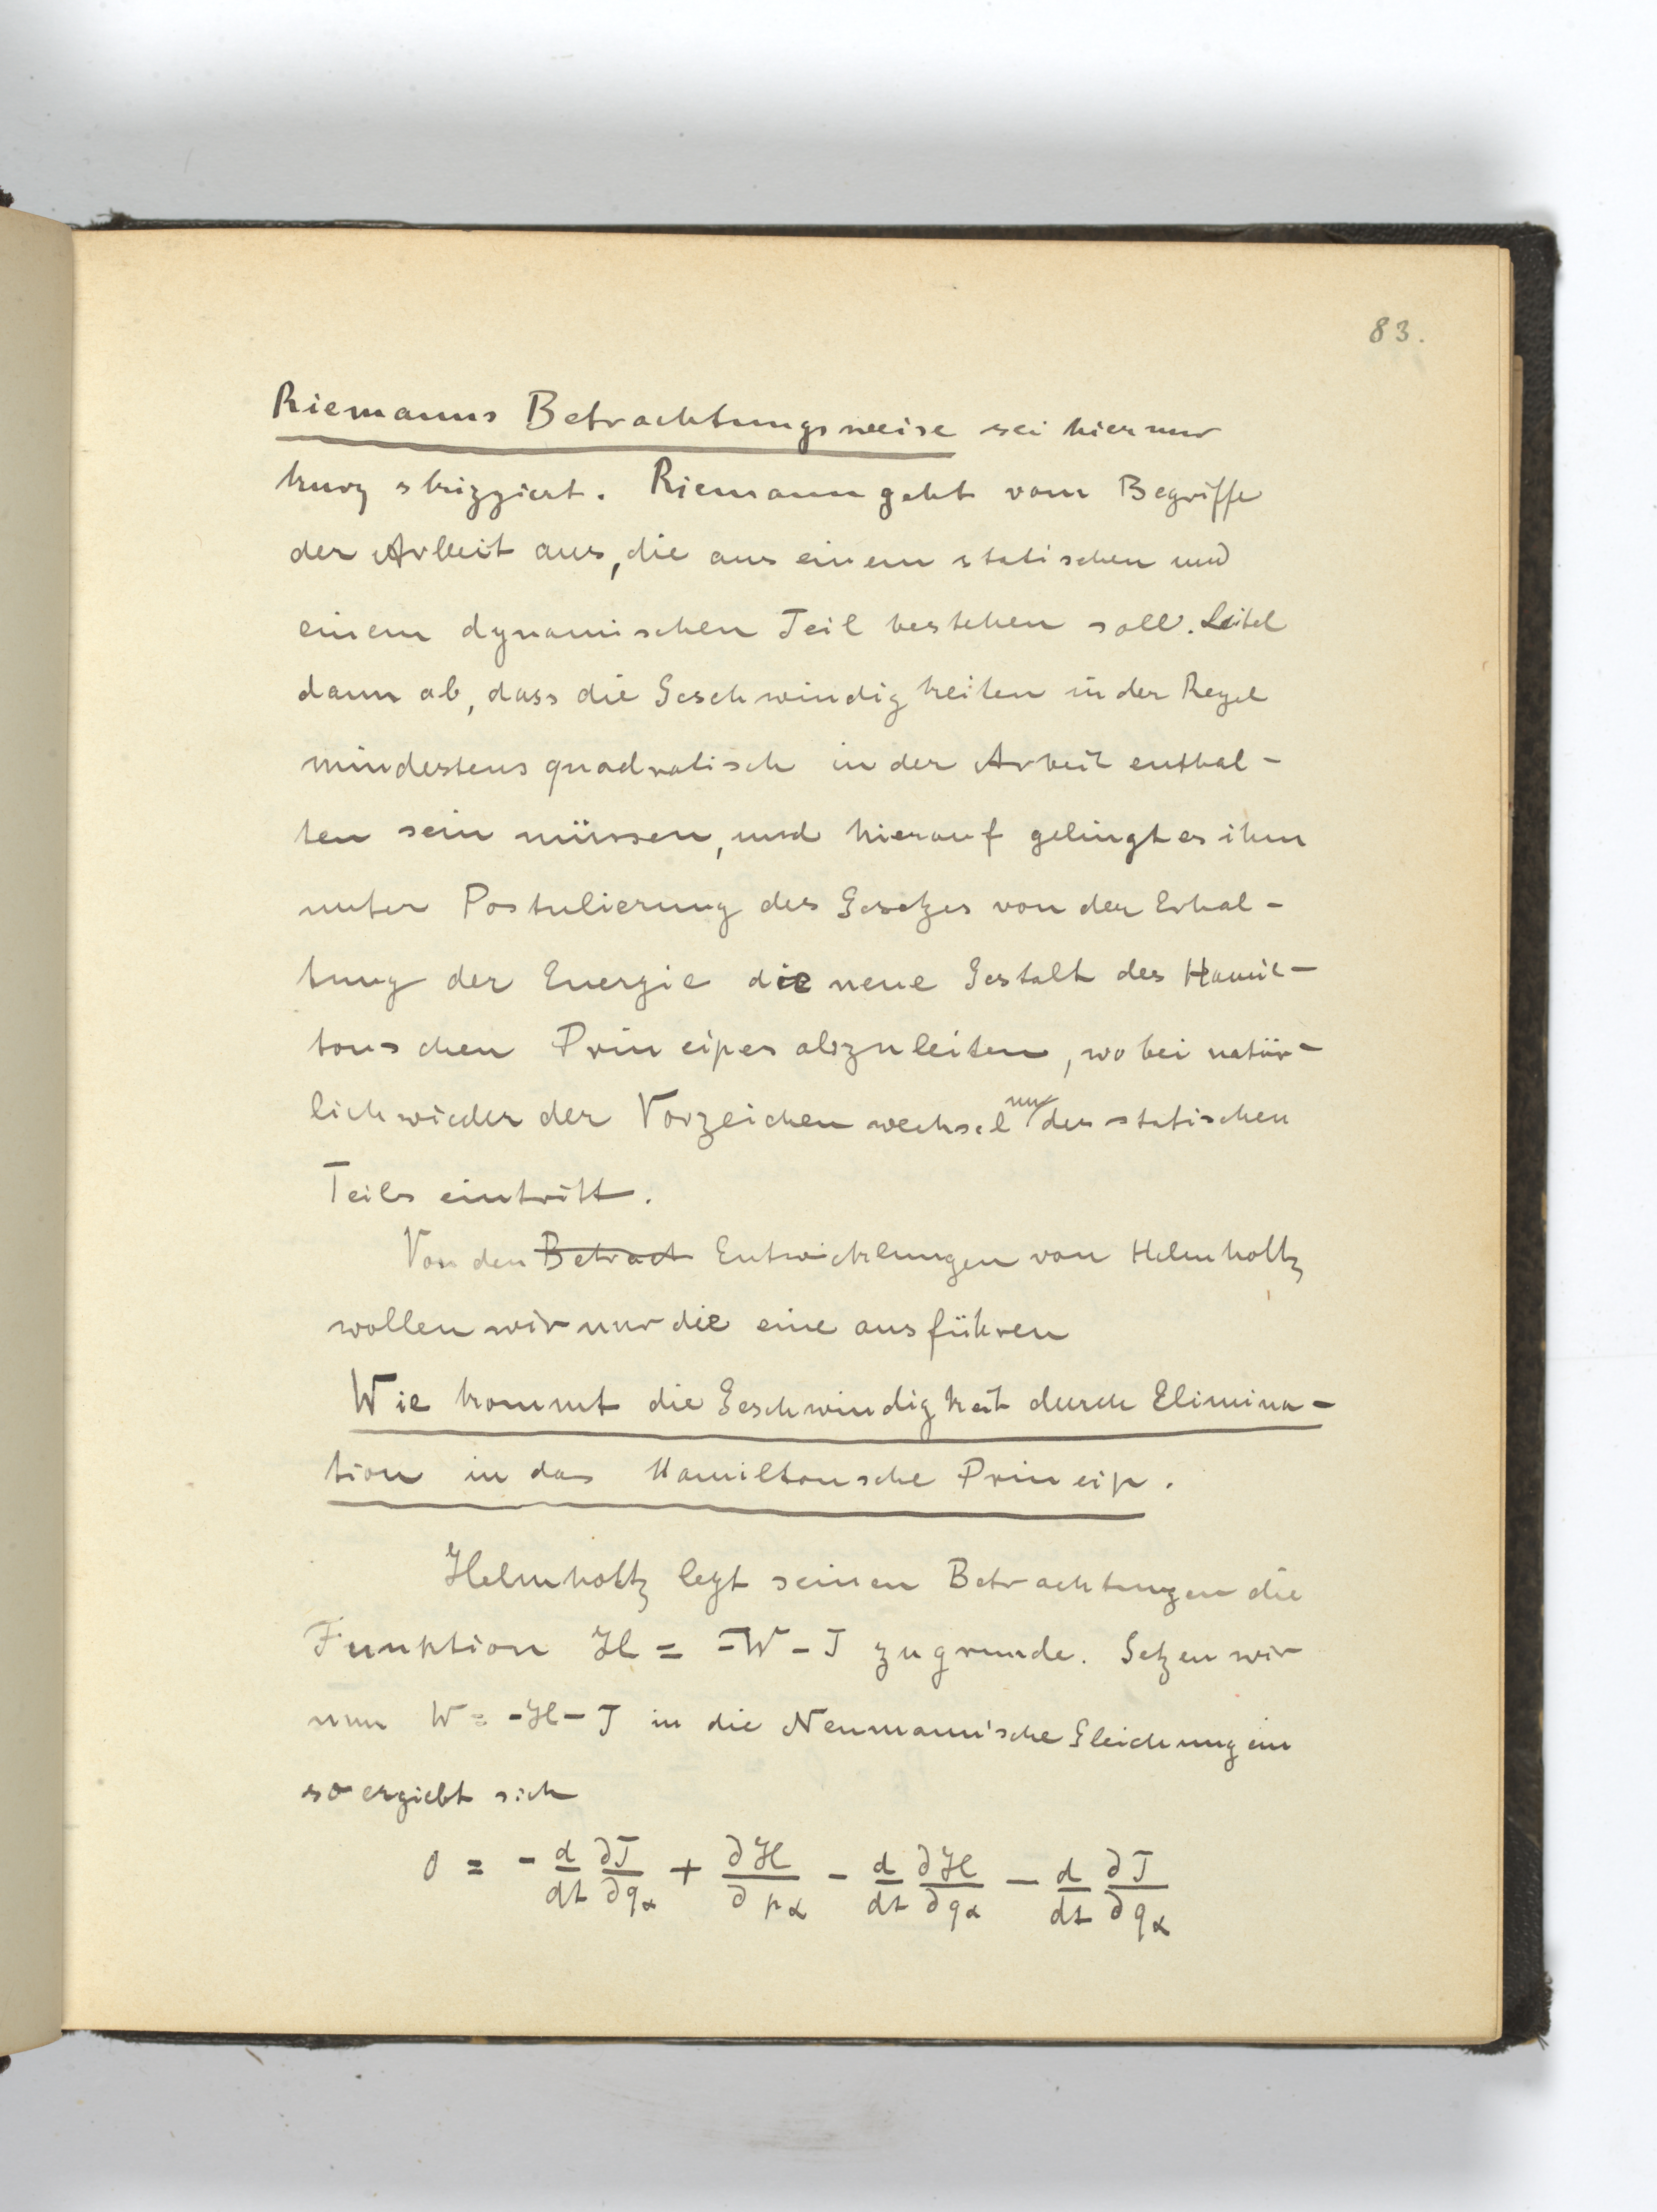 83.
Riemanns Betrachtungsweise sei hier nur
kurz skizziert. Riemann geht vom Begriffe
der Arbeit aus, die aus einem statischen und
einem dynamischen Teil bestehen soll. Leitet
dann ab, dass die Geschwindigkeiten in der Regel
mindestens quadratisch in der Arbeit enthal-
ten sein müssen, und hierauf gelingt es ihm
unter Postulierung des Gesetzes von der Erhal-
tung der Energie die neue Gestalt des Hamil-
tonschen Principes abzuleiten, wobei natür-
lich wieder der Vorzeichenwechsel nur des statischen
Teils eintritt.
Von den Betract Entwicklungen von Helmholtz
wollen wir nur die eine ausführen
Wie kommt die Geschwindigkeit durch Elimina-
tion in das Hamiltonsche Princip.
Helmholtz legt seinen Betrachtungen die
Funktion H = -W - T zugrunde. Setzen wir
nun W = -H - T in die Neumann'sche Gleichung ein
so ergiebt sich
0 = - d/dt ∂T/∂q_α + ∂H/∂p_α - d/dt ∂H/∂q_α - d/dt ∂T/∂q_α